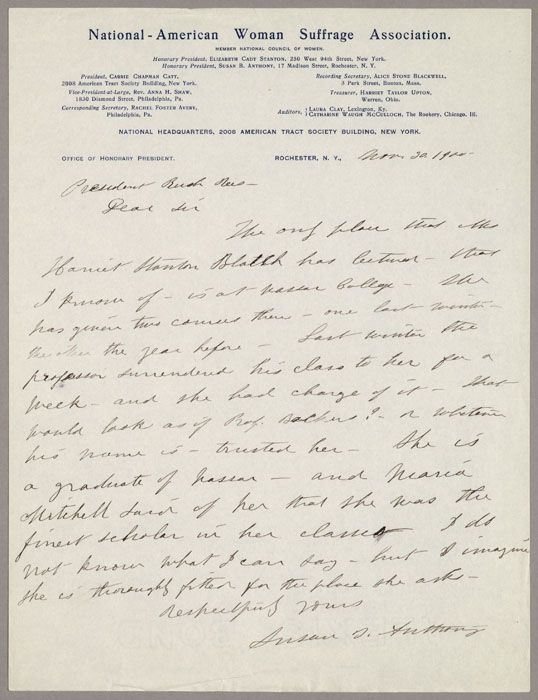 National-American Woman Suffrage Association.
MEMBER NATIONAL COUNCIL OF WOMEN.
Honorary President, ELIZABETH CADY STANTON, 250 West 94th Street, New York.
Honorary President, SUSAN B. ANTHONY, 17 Madison Street, Rochester, N. Y.
President, CARRIE CHAPMAN CATT,
2008 American Tract Society Building, New York.
Vice-President-at-Large, REV. ANNA H. SHAW,
1830 Diamond Street, Philadelphia, Pa.
Corresponding Secretary, RACHEL FOSTER AVERY,
Philadelphia, Pa.
Recording Secretary, ALICE STONE BLACKWELL,
3 Park Street, Boston, Mass.
Treasurer, HARRIET TAYLOR UPTON,
Warren, Ohio.
Auditors, { LAURA CLAY, Lexington, Ky.
CATHARINE WAUGH McCULLOCH, The Rookery, Chicago, Ill.
NATIONAL HEADQUARTERS, 2008 AMERICAN TRACT SOCIETY BUILDING, NEW YORK.
OFFICE OF HONORARY PRESIDENT. ROCHESTER, N. Y., Nov. 30. 1900
President Rush Rees -
Dear Sir
The only place that Mrs
Harriot Stanton Blatch has lectured - that
I know of - is at Vassar College - She
has given two courses there - one last winter -
the other the year before - Last winter the
professor surrendered his class to her for a
week - and she had charge of it - that
would look as if Prof. ? - or whatever
his name is - trusted her - She is
a graduate of Vassar - and Maria
Mitchell said of her that she was the
finest scholar in her class I do
not know what I can say - but I imagine
she is thoroughly fitted for the place she asks -
Respectfully yours
Susan B. Anthony